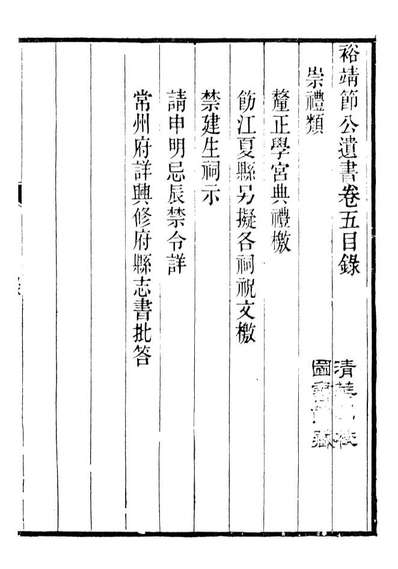 裕靖節公遺書卷五目錄
崇禮類
釐正學宮典禮檄
飭江夏縣另擬各祠祝文檄
禁建生祠示
請申明忌辰禁令詳
常州府詳興修府縣志書批答
清華
圖書